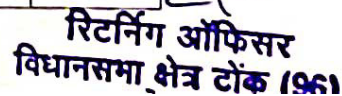 रिटर्निंग ऑफिसर
विधानसभा क्षेत्र टोंक (96)